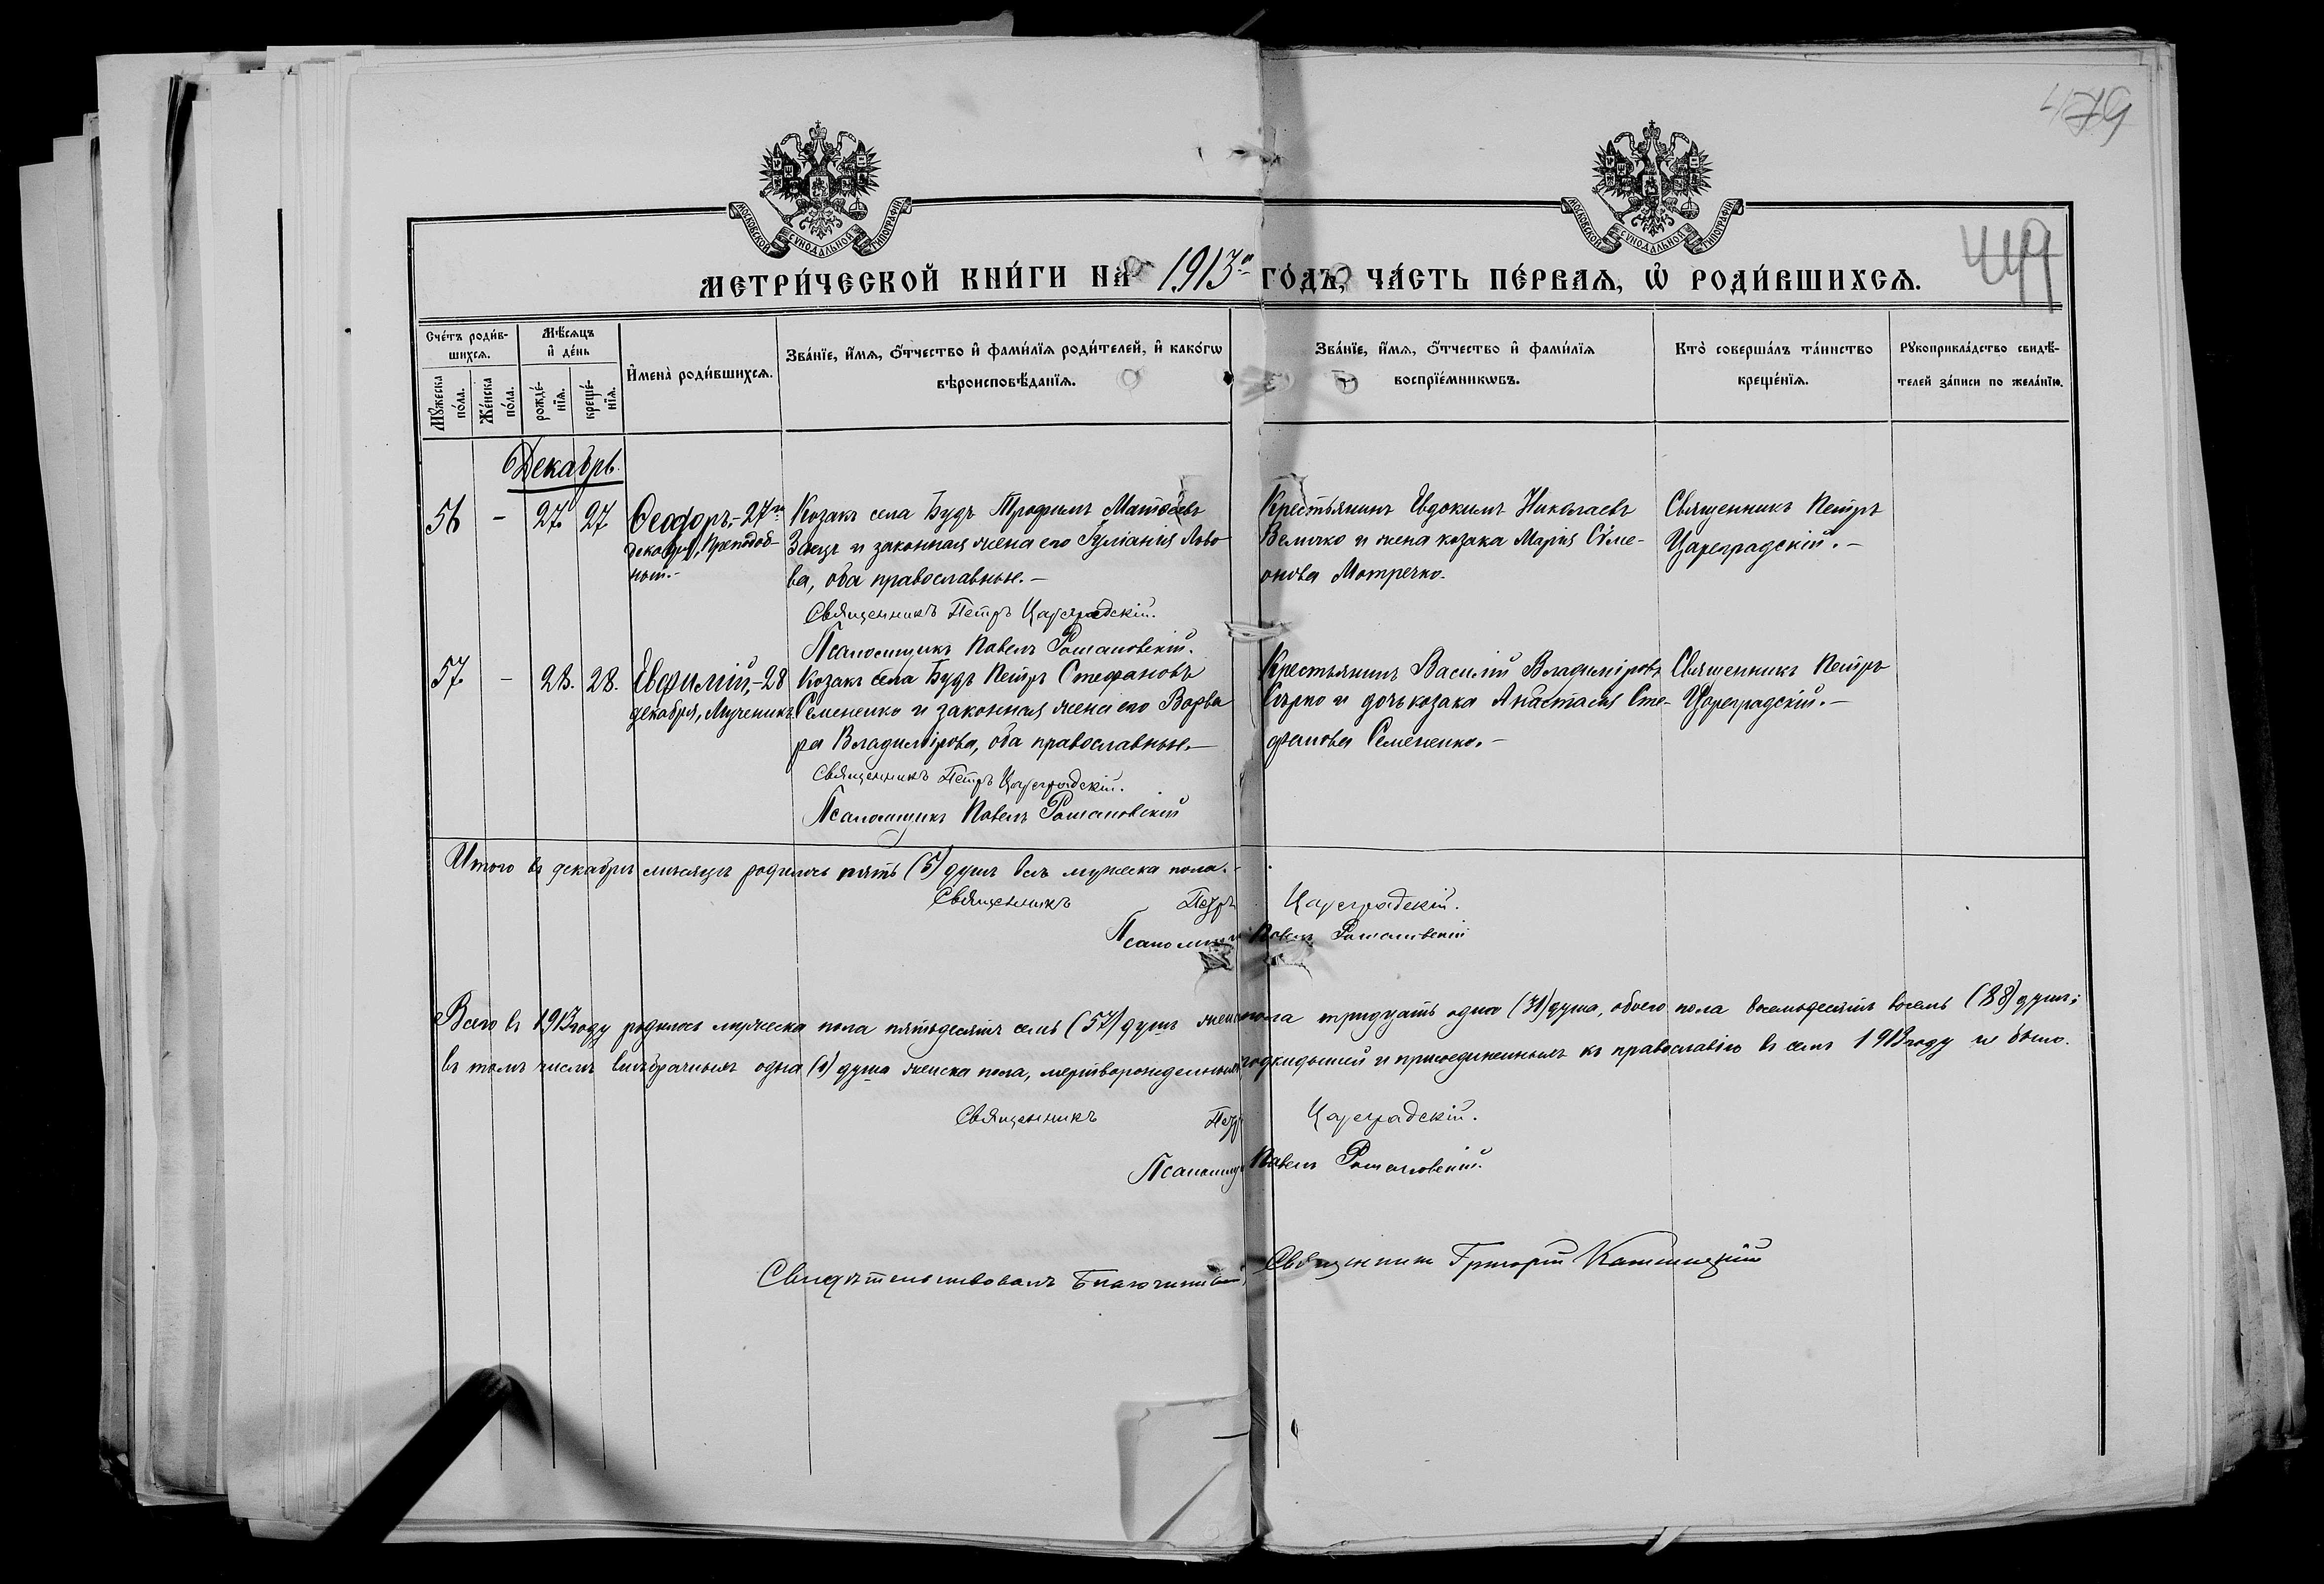 479
449
МОСКОВСКОЙ СѴНОДАЛЬНОЙ ТИПОГРАФІИ
МОСКОВСКОЙ СѴНОДАЛЬНОЙ ТИПОГРАФІИ
МЕТРИ́ЧЕСКОЙ КНИ́ГИ НА 1913й ГО́ДЪ, ЧА́СТЬ ПЕ́РВАѦ, Ѡ҆ РОДИ́ВШИХСѦ.
Сче́тъ роди́в-
шихсѧ.
Мѣ́сѧцъ
и҆ де́нь
Мꙋ́жеска
по́ла.
Же́нска
по́ла.
рожде́-
нїѧ.
креще́-
нїѧ.
И҆мена̀ роди́вшихсѧ.
Зва́нїе, и҆́мѧ, ѻ҆́тчество и҆ фами́лїѧ роди́телей, и҆ како́гѡ
вѣроисповѣ́данїѧ.
Зва́нїе, и҆́мѧ, ѻ҆́тчество и҆ фами́лїѧ
воспрїе́мникѡвъ.
Кто̀ соверша́лъ та́инство
креще́нїѧ.
Рꙋкоприкла́дство свидѣ́-
телей за́писи по жела́нїю.
Декабрь.
56 - 27. 27.
Ѳеодоръ, - 27го
декабря, Преподоб-
ный.-
Козакъ села Будъ Трофимъ Матѳеевъ
Заецъ и законная жена его Іуліанія Льво-
ва, оба православные. -
Священникъ Петръ Цареградскій.
Псаломщикъ Павелъ Романовскій.
Крестьянинъ Евдокимъ Николаевъ
Величко и жена козака Марія Сѵме-
онова Мотречко.
Священникъ Петръ
Цареградскій. -
57. - 28. 28.
Евфимій, - 28
декабря, Мученикъ
Козакъ села Будъ Петръ Стефановъ
Семененко и законная жена его Варва
ра Владимірова, оба православные. -
Священникъ Петръ Цареградскій.
Псаломщикъ Павелъ Романовскій
Крестьянинъ Василій Владиміровъ
Сѣрко и дочь козака Анастасія Сте-
фанова Семененко. -
Священникъ Петръ
Цареградскій. -
Итого въ декабрѣ мѣсяцѣ родилось пять (5) душъ всѣ мужеска пола. -
Священникъ Петръ Цареградскій.
Псаломщикъ Павелъ Романовскій
Всего въ 1913 году родилось мужеска пола пятьдесятъ семь (57) душъ женска пола тридцать одна (31) душа, обоего пола восемьдесятъ восемь (88) душъ;
въ томъ числѣ внѣбрачныхъ одна (1) душа женска пола, мертворожденныхъ подкидышей и присоединенныхъ къ православію въ семъ 1913 году не было.
Священникъ Петръ Цареградскій.
Псаломщикъ Павелъ Романовскій.
Свидѣтельствовалъ Благочинный Священникъ Григорій